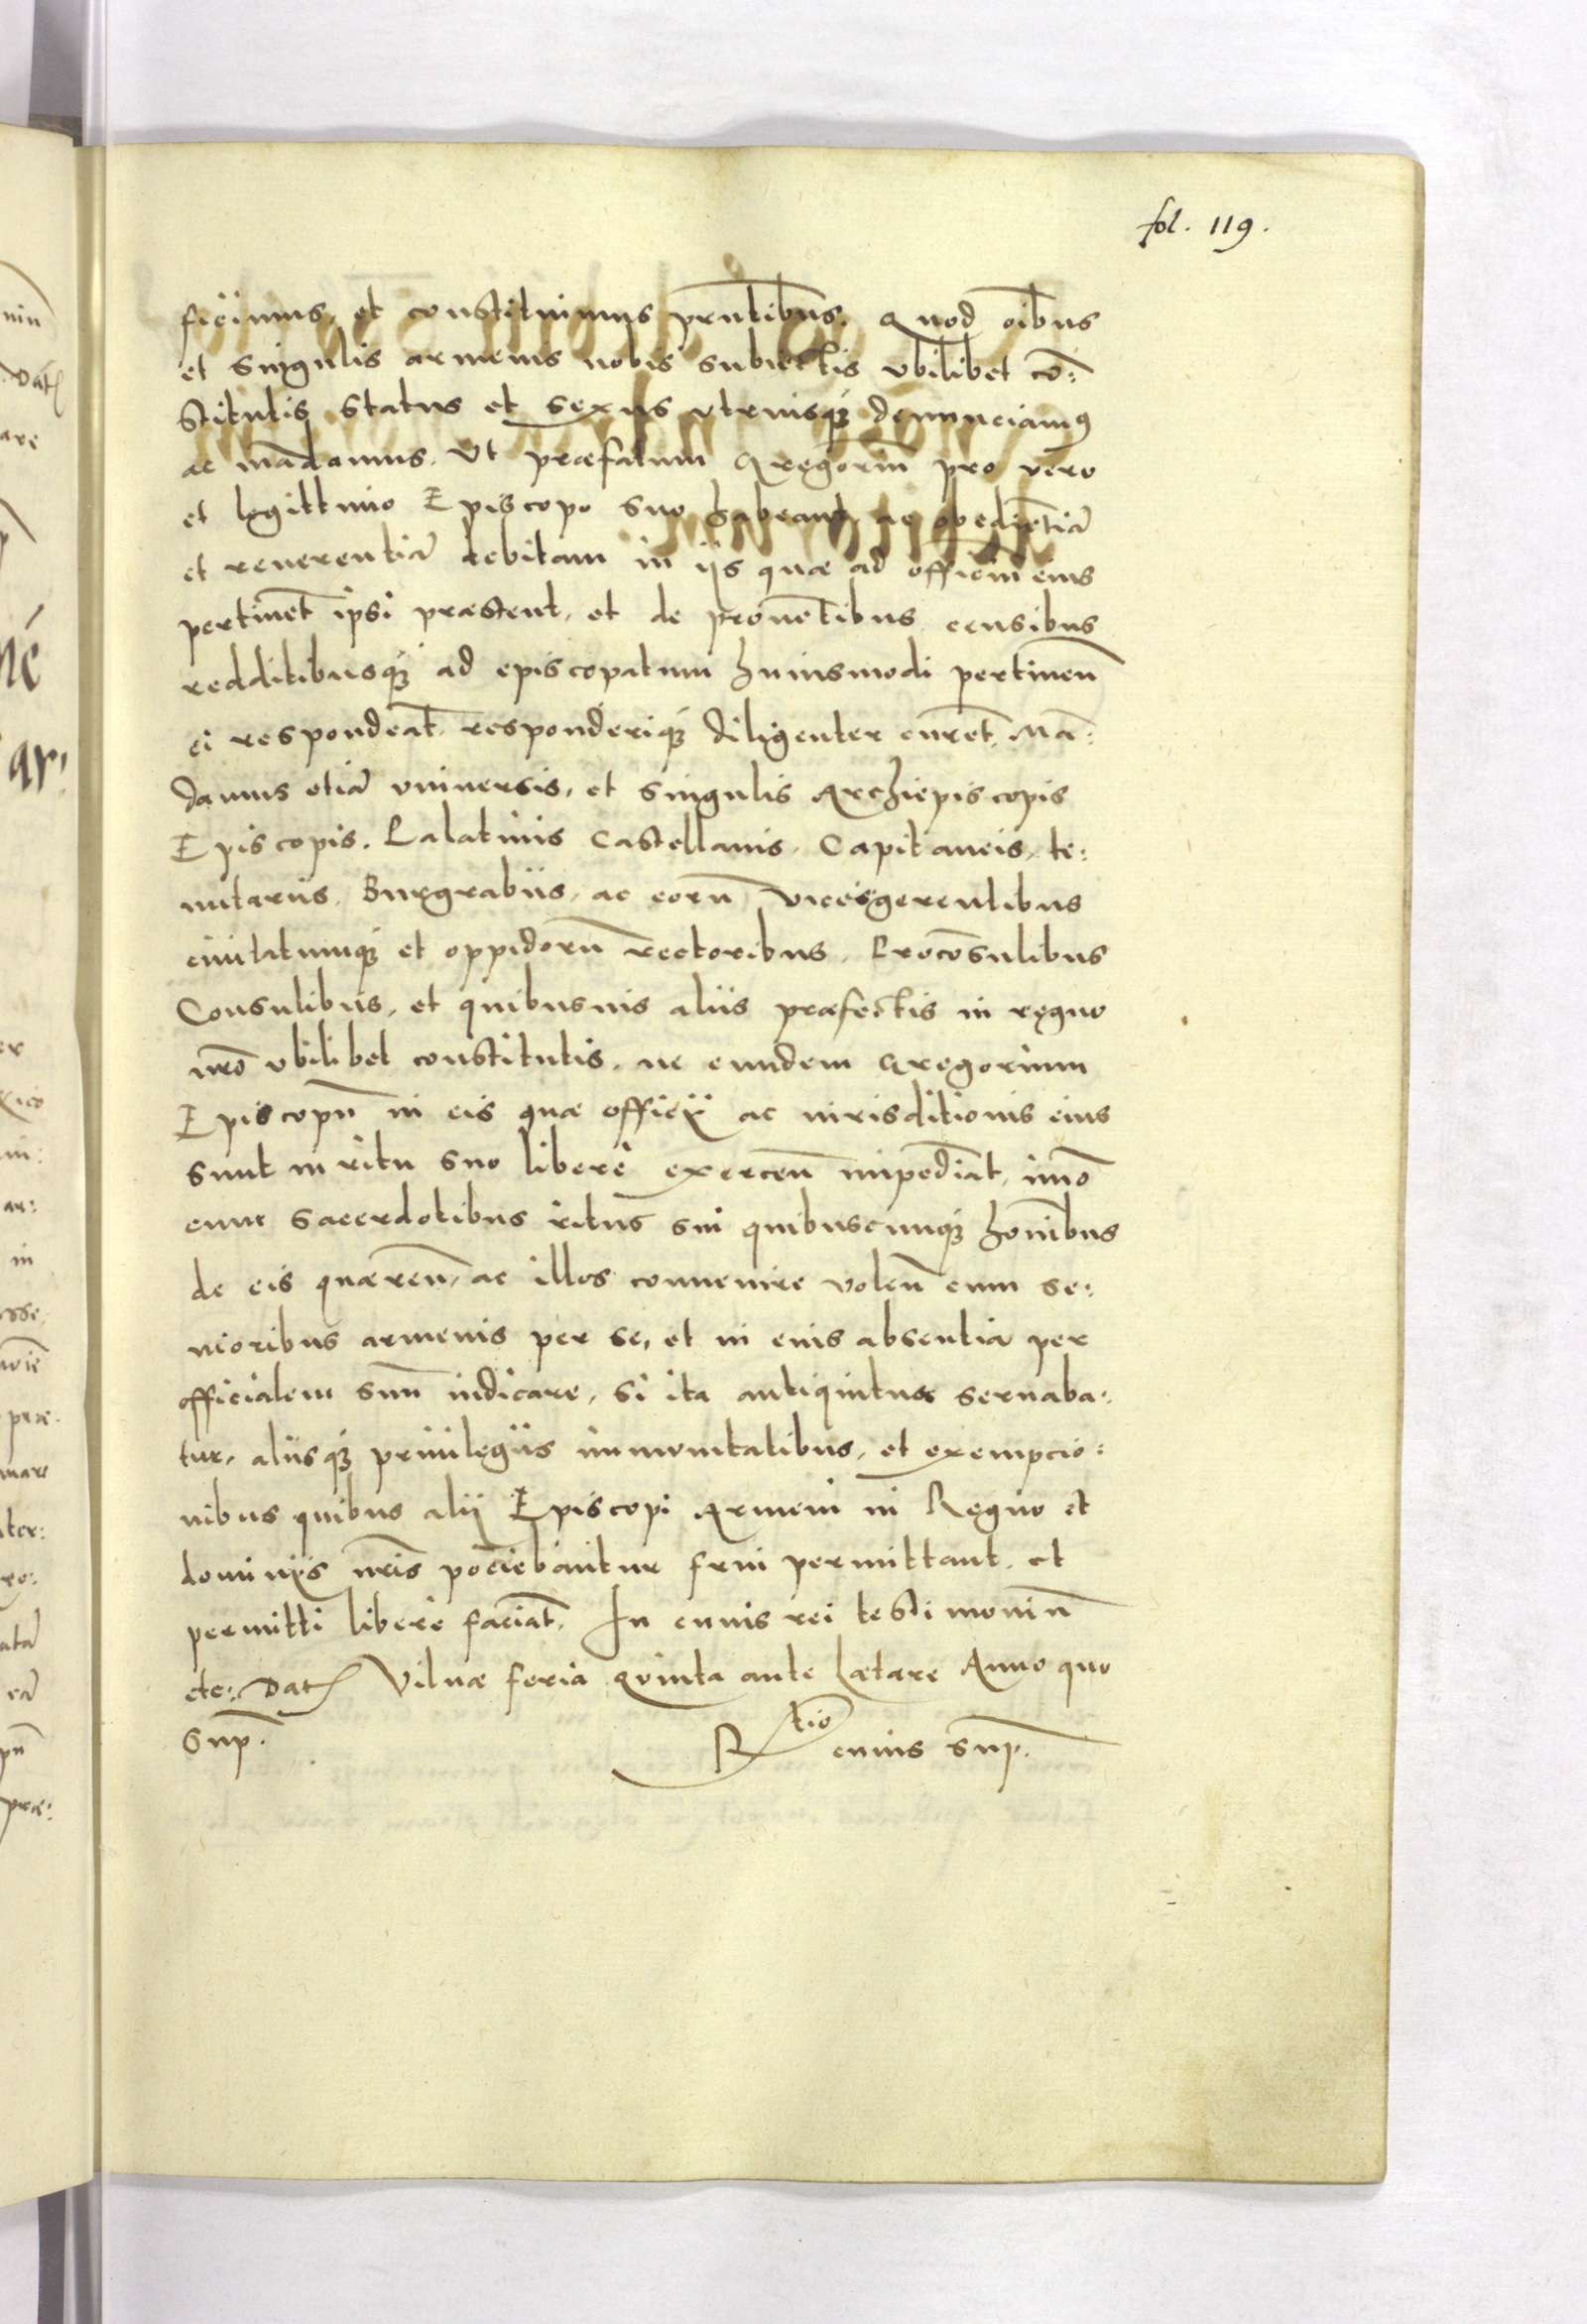 fol. 119.
ficimus, et constituimus prntibus. Quod oibus
et singulis armenis nobis subiectis vbilibet cō:
stitutis status et sexus vtriusq3 denunciamꝰ
ac mādamus. Vt præfatum Gregoriū pro vero
et legittimo Episcopo suo habeant, ac obediētiā
et reuerentiā debitam in ijs quæ ad officiū eius
pertinēt ipsi præstent, et de prouētibus censibus
redditibusq3 ad episcopatum huiusmodi pertineñ
ei respondeāt responderiq3 diligenter curēt. Mā:
damus etiā vniuersis, et singulis Archiepiscopis
Episcopis. Palatinis Castellanis. Capitaneis, te:
nutariis. Burgrabiis, ac eorū vicesgerentibus
ciuitatumq3 et oppidorū rectoribus. Procōsulibus
Consulibus, et quibusuis aliis præfectis in regno
nrō vbilibet constitutis. ne eundem Gregorium
Episcopū in eis quæ officii ac iurisditionis eius
sunt in ritu suo liberè exerceñ impediāt, imō
cum sacerdotibus ritus sui quibuscunq3 hominibus
de eis quæreñ, ac illos conuenire voleñ cum se:
nioribus armenis per se, et in eius absentia per
officialem suū iudicare, si ita antiquitus seruaba:
tur, aliisq3 priuilegiis immunitatibus, et exempcio:
nibus quibus alij Episcopi Armeni in Regno et
dominijs nris pociebantur frui permittant, et
permitti liberè faciāt. In cuius rei testimoniū
etc: Dat Vilnæ feria quinta ante Lætare Anno quo
Sup.
Rtio cuius sup.